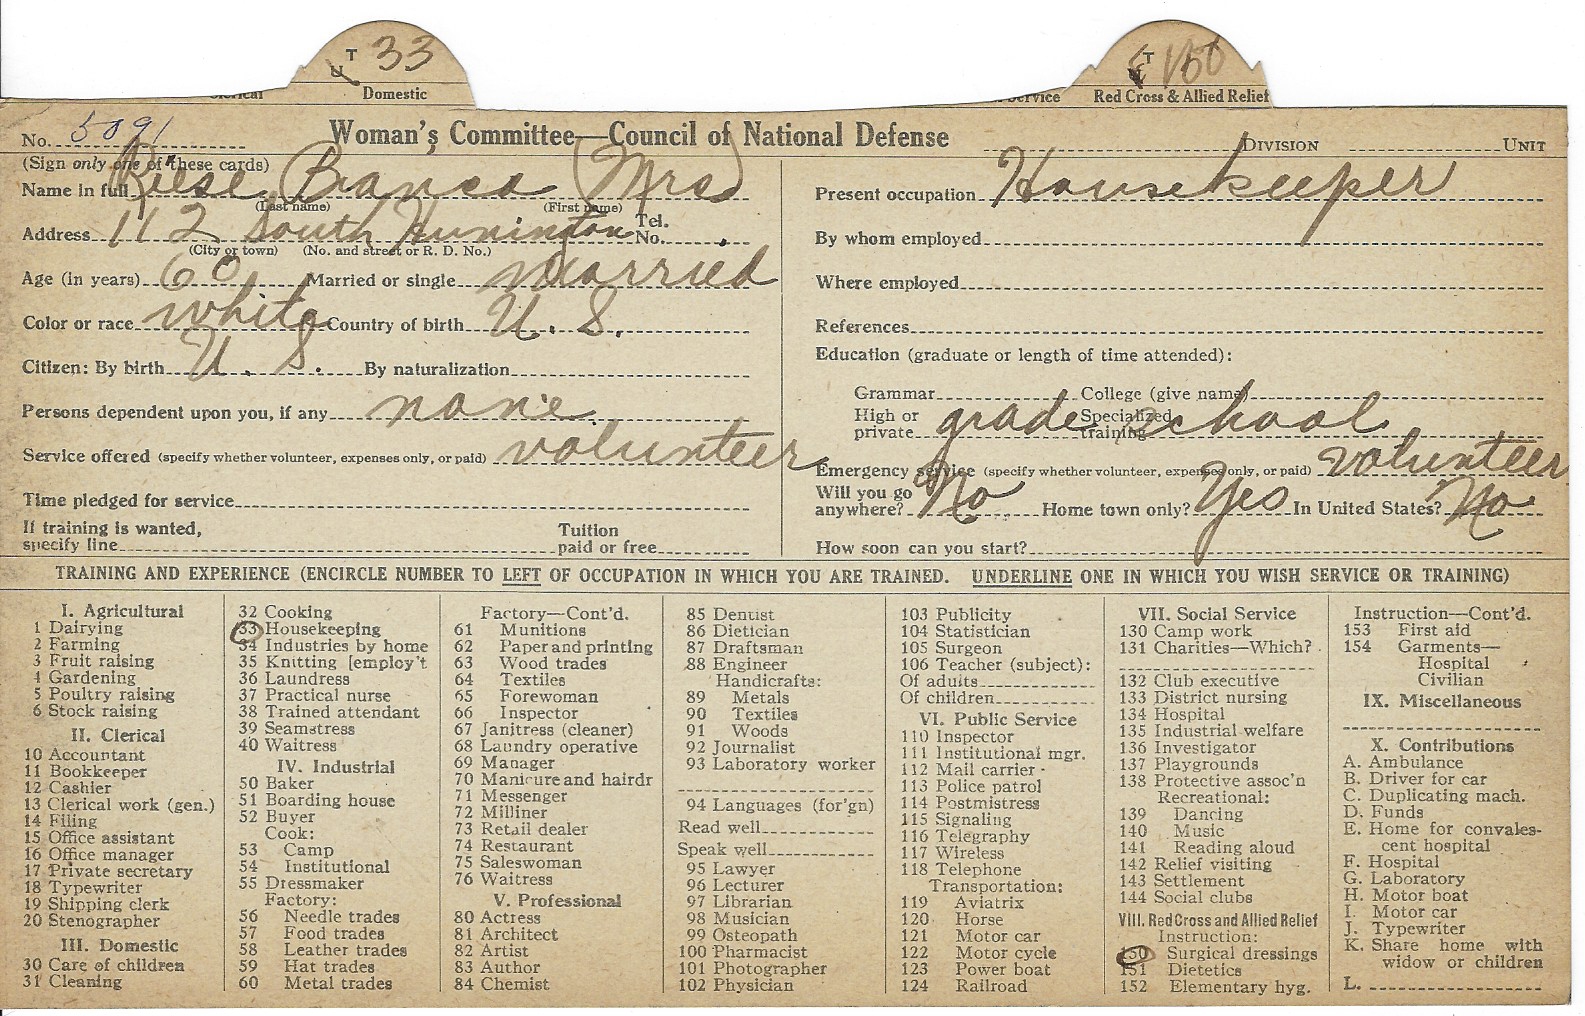 T 33
U
Domestic
T 150
Service Red Cross & Allied Relief
No. 5091 Woman's Committee—Council of National Defense DIVISION UNIT
(Sign only one of these cards)
Name in full Reese Bianca (Mrs)
(Last name) (First name)
Address 112 South Hunington Tel. No.
(City or town) (No. and street or R. D. No.)
Age (in years) 60 Married or single married
Color or race white Country of birth U. S.
Citizen: By birth U. S. By naturalization
Persons dependent upon you, if any none
Service offered (specify whether volunteer, expenses only, or paid) volunteer
Time pledged for service
If training is wanted, specify line Tuition paid or free
Present occupation Housekeeper
By whom employed
Where employed
References
Education (graduate or length of time attended):
Grammar College (give name)
High or private grade school Specialized training
Emergency service (specify whether volunteer, expenses only, or paid) volunteer
Will you go anywhere? No Home town only? Yes In United States? No
How soon can you start?
TRAINING AND EXPERIENCE (ENCIRCLE NUMBER TO LEFT OF OCCUPATION IN WHICH YOU ARE TRAINED. UNDERLINE ONE IN WHICH YOU WISH SERVICE OR TRAINING)
I. Agricultural
1 Dairying
2 Farming
3 Fruit raising
4 Gardening
5 Poultry raising
6 Stock raising
II. Clerical
10 Accountant
11 Bookkeeper
12 Cashier
13 Clerical work (gen.)
14 Filing
15 Office assistant
16 Office manager
17 Private secretary
18 Typewriter
19 Shipping clerk
20 Stenographer
III. Domestic
30 Care of children
31 Cleaning
32 Cooking
33 Housekeeping
34 Industries by home
35 Knitting [employ't
36 Laundress
37 Practical nurse
38 Trained attendant
39 Seamstress
40 Waitress
IV. Industrial
50 Baker
51 Boarding house
52 Buyer
Cook:
53 Camp
54 Institutional
55 Dressmaker
Factory:
56 Needle trades
57 Food trades
58 Leather trades
59 Hat trades
60 Metal trades
Factory—Cont'd.
61 Munitions
62 Paper and printing
63 Wood trades
64 Textiles
65 Forewoman
66 Inspector
67 Janitress (cleaner)
68 Laundry operative
69 Manager
70 Manicure and hairdr
71 Messenger
72 Milliner
73 Retail dealer
74 Restaurant
75 Saleswoman
76 Waitress
V. Professional
80 Actress
81 Architect
82 Artist
83 Author
84 Chemist
85 Dentist
86 Dietician
87 Draftsman
88 Engineer
Handicrafts:
89 Metals
90 Textiles
91 Woods
92 Journalist
93 Laboratory worker
94 Languages (for'gn)
Read well
Speak well
95 Lawyer
96 Lecturer
97 Librarian
98 Musician
99 Osteopath
100 Pharmacist
101 Photographer
102 Physician
103 Publicity
104 Statistician
105 Surgeon
106 Teacher (subject):
Of adults
Of children
VI. Public Service
110 Inspector
111 Institutional mgr.
112 Mail carrier
113 Police patrol
114 Postmistress
115 Signaling
116 Telegraphy
117 Wireless
118 Telephone
Transportation:
119 Aviatrix
120 Horse
121 Motor car
122 Motor cycle
123 Power boat
124 Railroad
VII. Social Service
130 Camp work
131 Charities—Which?
132 Club executive
133 District nursing
134 Hospital
135 Industrial welfare
136 Investigator
137 Playgrounds
138 Protective assoc'n
Recreational:
139 Dancing
140 Music
141 Reading aloud
142 Relief visiting
143 Settlement
144 Social clubs
VIII. Red Cross and Allied Relief
Instruction:
150 Surgical dressings
151 Dietetics
152 Elementary hyg.
Instruction—Cont'd.
153 First aid
154 Garments—
Hospital
Civilian
IX. Miscellaneous
X. Contributions
A. Ambulance
B. Driver for car
C. Duplicating mach.
D. Funds
E. Home for convales-
cent hospital
F. Hospital
G. Laboratory
H. Motor boat
I. Motor car
J. Typewriter
K. Share home with
widow or children
L.